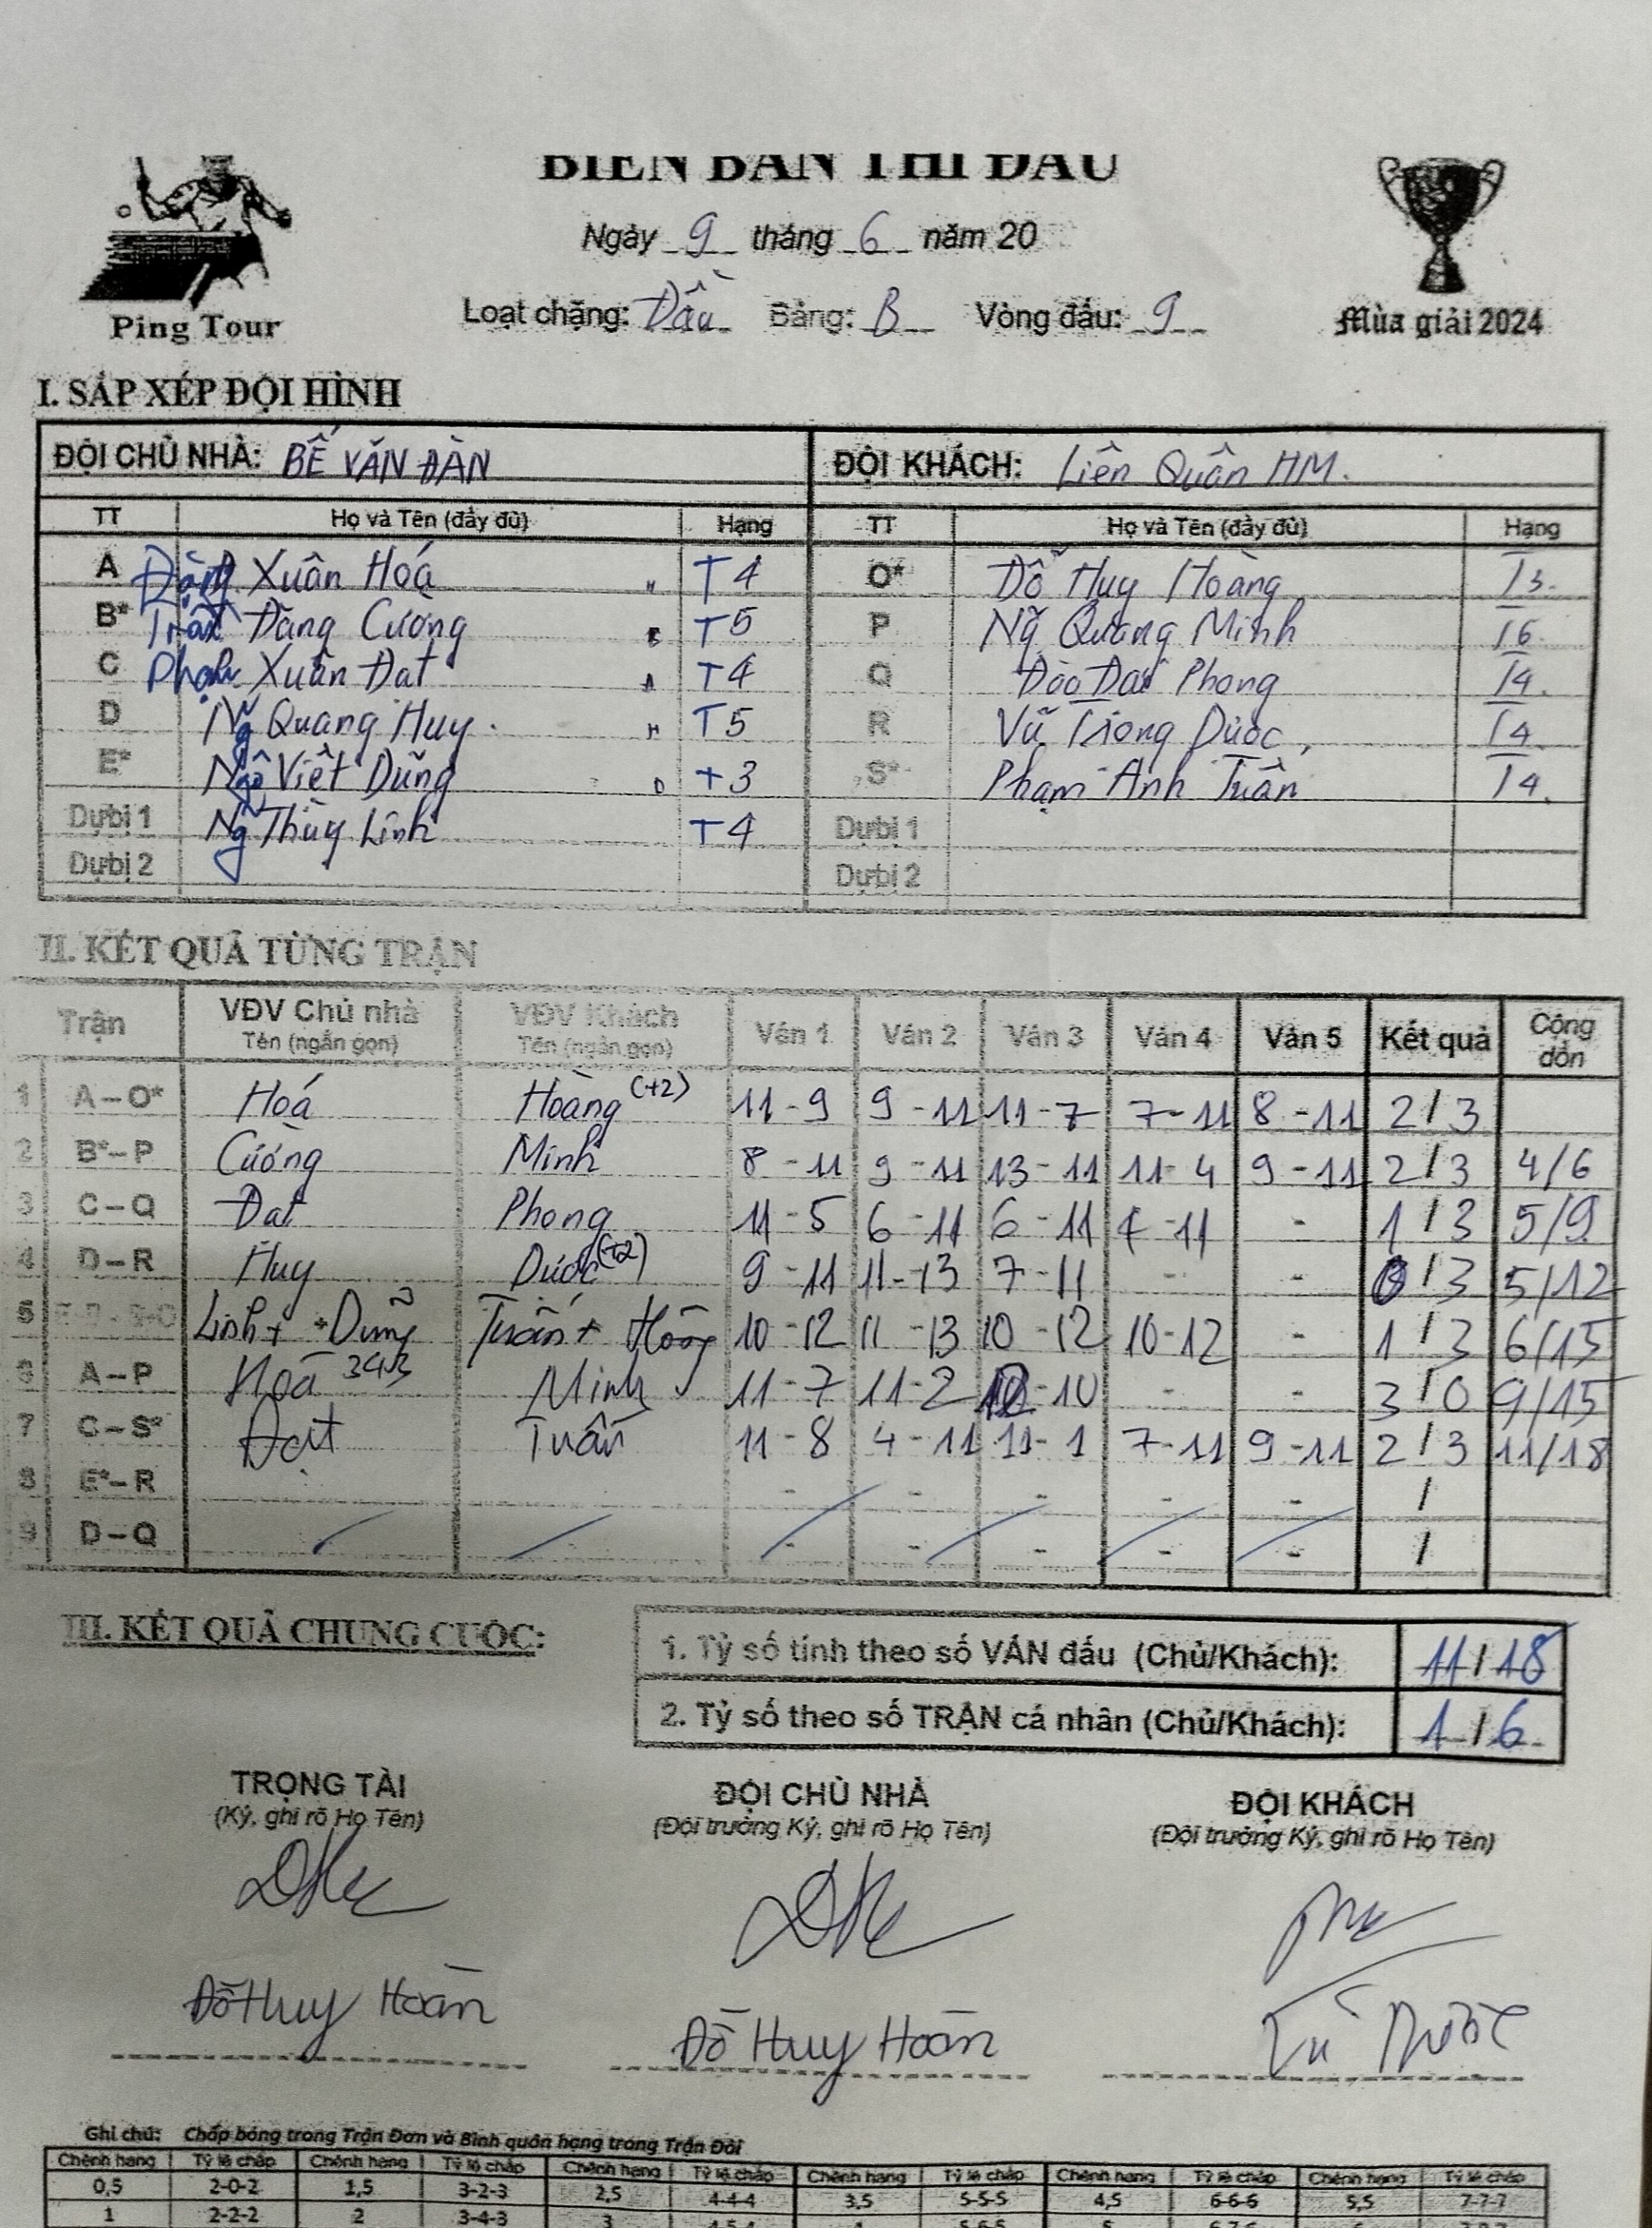 BIÊN BẢN THI ĐẤU
Ngày 9 tháng 6 năm 20
Loạt chặng: Đầu Bảng: B Vòng đấu: 9
Ping Tour
Mùa giải 2024
I. SẮP XẾP ĐỘI HÌNH
ĐỘI CHỦ NHÀ: BẾ VĂN ĐÀN ĐỘI KHÁCH: Liên Quân HM.
TT Họ và Tên (đầy đủ) Hạng TT Họ và Tên (đầy đủ) Hạng
A Đặng Xuân Hoá T4 O* Đỗ Huy Hoàng T3.
B* Trần Đăng Cường T5 P Ng̃ Quang Minh T6
C Phạm Xuân Đạt T4 Q Đào Đại Phong T4.
D Ng̃ Quang Huy. T5 R Vũ Trọng Được, T4.
E* Ngô Việt Dũng T3 S* Phạm Anh Tuấn T4.
Dự bị 1 Ng̃ Thùy Linh T4 Dự bị 1
Dự bị 2 Dự bị 2
II. KẾT QUẢ TỪNG TRẬN
Trận VĐV Chủ nhà Tên (ngắn gọn) VĐV Khách Tên (ngắn gọn) Ván 1 Ván 2 Ván 3 Ván 4 Ván 5 Kết quả Cộng dồn
1 A – O* Hoá Hoàng (+2) 11 - 9 9 - 11 11 - 7 7 - 11 8 - 11 2 / 3
2 B* – P Cường Minh 8 - 11 9 - 11 13 - 11 11 - 4 9 - 11 2 / 3 4/6
3 C – Q Đạt Phong 11 - 5 6 - 11 6 - 11 4 - 11 - 1 / 3 5/9
4 D – R Huy Được (+2) 9 - 11 11 - 13 7 - 11 - - 0 / 3 5/12
5 Linh + Dũng Tuấn + Hoàng 10 - 12 11 - 13 10 - 12 10 - 12 - 1 / 3 6/15
6 A – P Hoá 343 Minh 11 - 7 11 - 2 12 - 10 - - 3 / 0 9/15
7 C – S* Đạt Tuấn 11 - 8 4 - 11 11 - 1 7 - 11 9 - 11 2 / 3 11/18
8 E* – R - - - - - /
9 D – Q - - - - - /
III. KẾT QUẢ CHUNG CUỘC:
1. Tỷ số tính theo số VÁN đấu (Chủ/Khách): 11 / 18
2. Tỷ số theo số TRẬN cá nhân (Chủ/Khách): 1 / 6
TRỌNG TÀI ĐỘI CHỦ NHÀ ĐỘI KHÁCH
(Ký, ghi rõ Họ Tên) (Đội trưởng Ký, ghi rõ Họ Tên) (Đội trưởng Ký, ghi rõ Họ Tên)
Đỗ Huy Hoàn Đỗ Huy Hoàn Vũ Được
Ghi chú: Chấp bóng trong Trận Đơn và Bình quân hạng trong Trận Đôi
Chênh hạng Tỷ lệ chấp Chênh hạng Tỷ lệ chấp Chênh hạng Tỷ lệ chấp Chênh hạng Tỷ lệ chấp Chênh hạng Tỷ lệ chấp Chênh hạng Tỷ lệ chấp
0,5 2-0-2 1,5 3-2-3 2,5 4-4-4 3,5 5-5-5 4,5 6-6-6 5,5 7-7-7
1 2-2-2 2 3-4-3 3 4-5-4